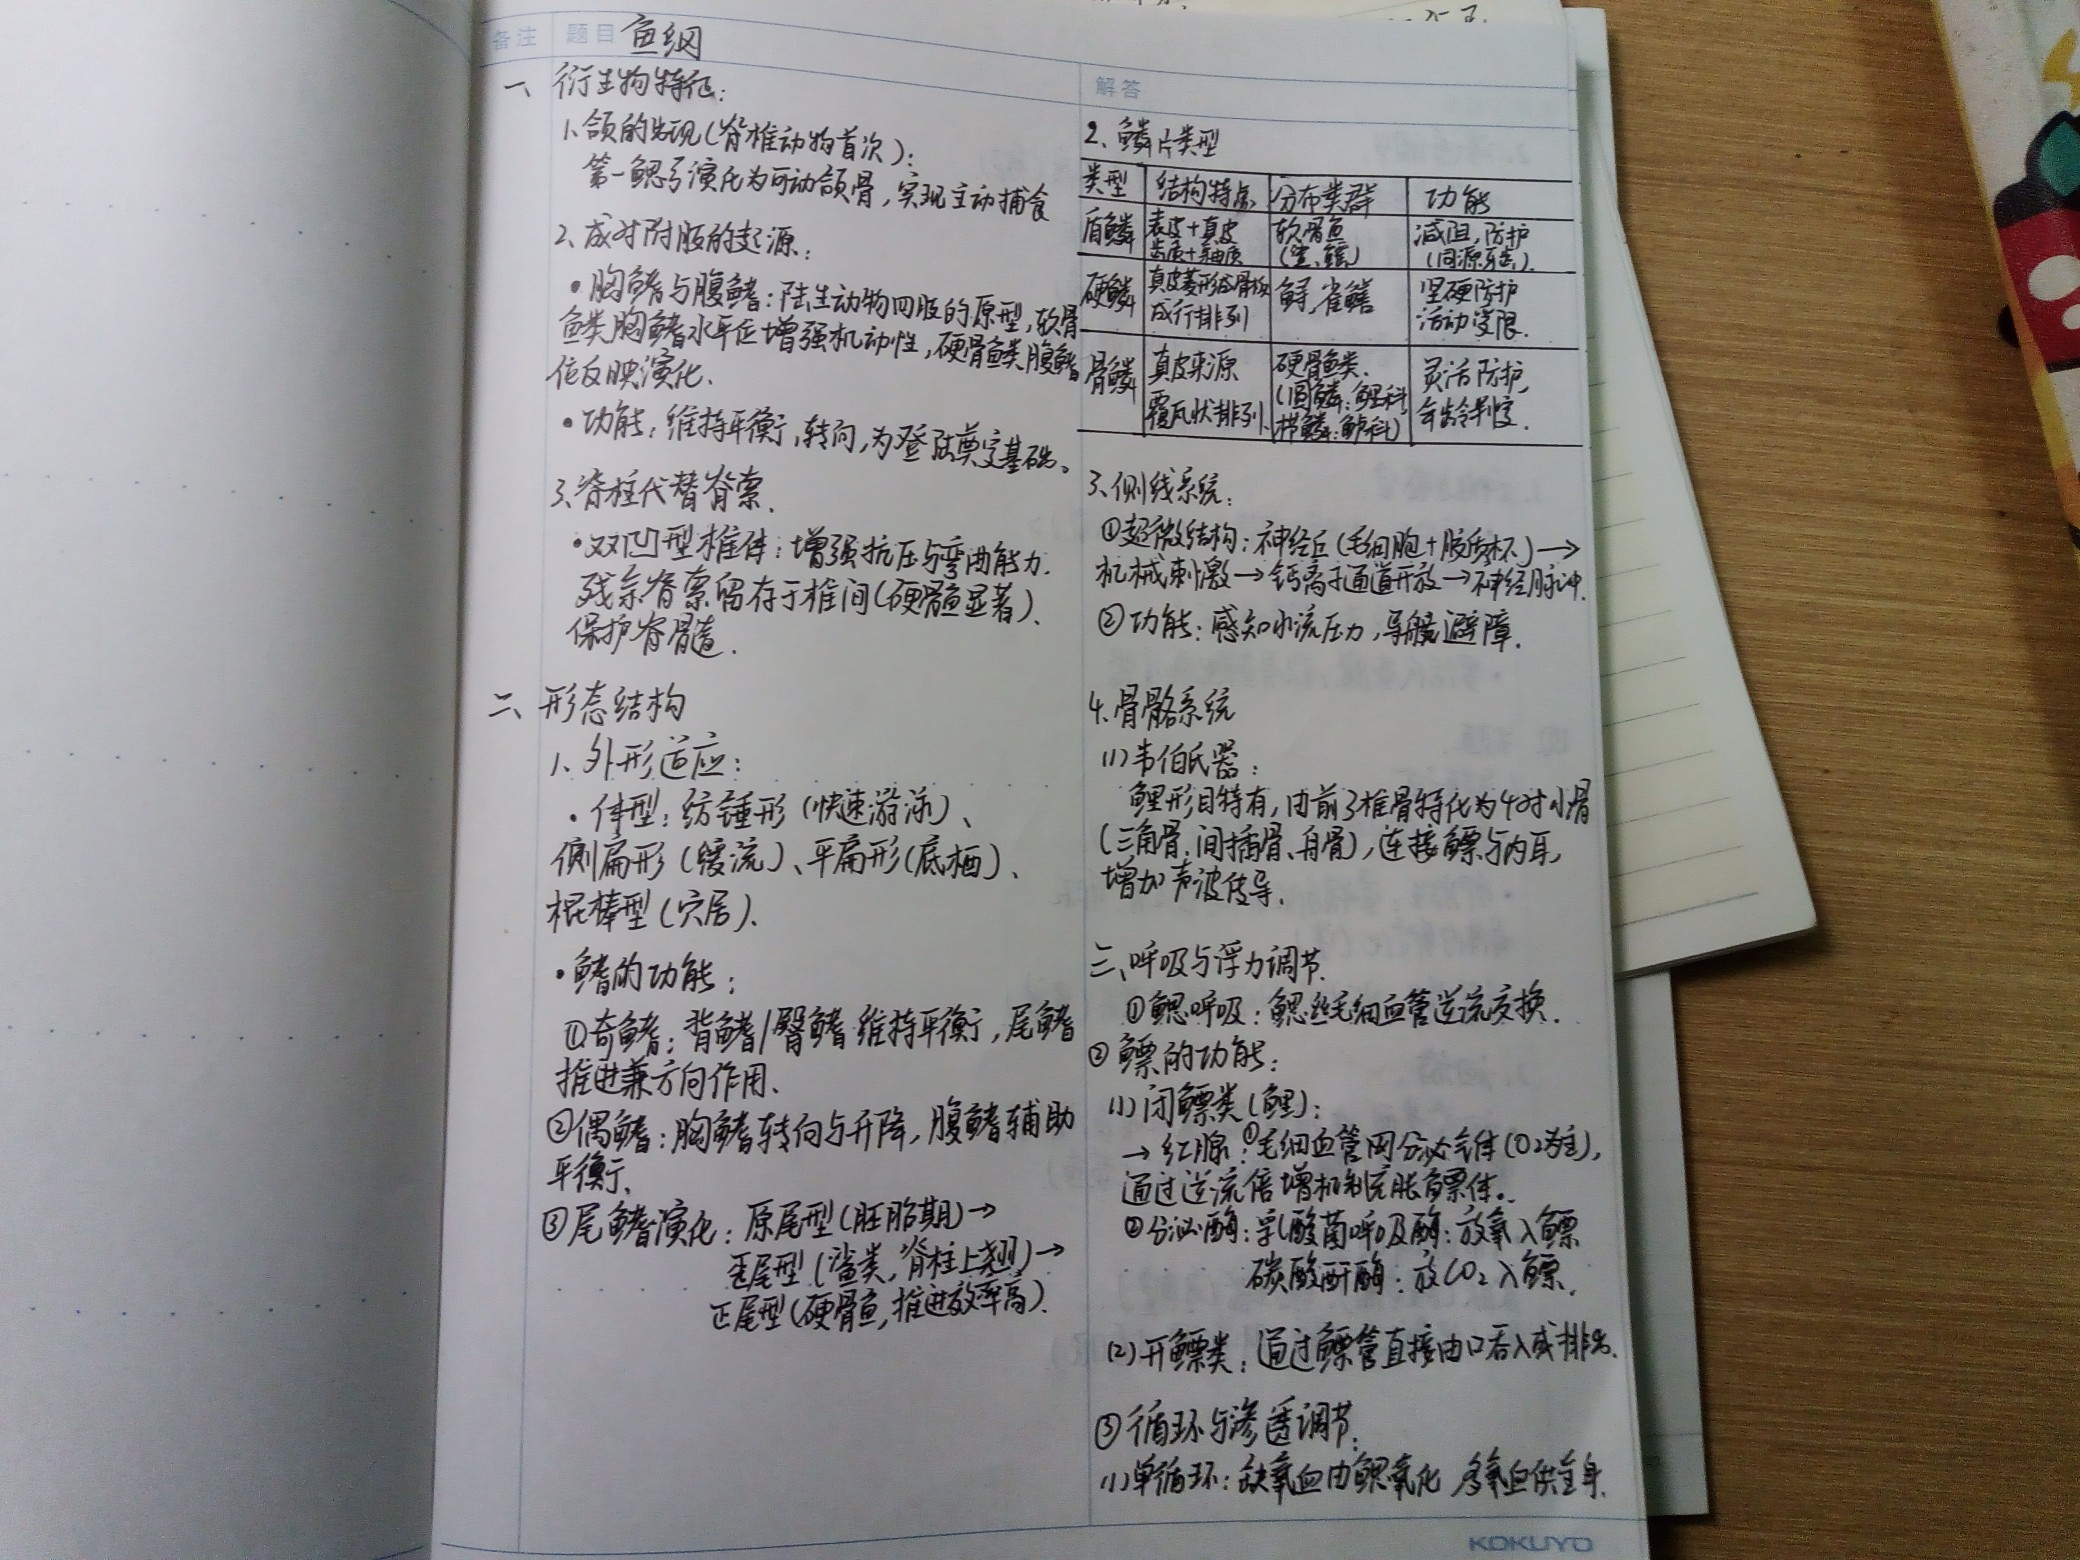 备注 题目 鱼纲
一、衍生物特征：
1、颌的出现(脊椎动物首次)：
第一鳃弓演化为可动颌骨，实现主动捕食
2、成对附肢的起源：
·胸鳍与腹鳍：陆生动物四肢的原型，软骨
鱼类胸鳍水平位增强机动性，硬骨鱼类腹鳍
位反映演化.
·功能：维持平衡，转向，为登陆奠定基础。
3、脊柱代替脊索.
·双凹型椎体：增强抗压与弯曲能力.
残余脊索留存于椎间(硬骨鱼显著).
保护脊髓.
二、形态结构
1、外形适应：
·体型：纺锤形(快速游泳)、
侧扁形(缓流)、平扁形(底栖)、
棍棒型(穴居).
·鳍的功能：
①奇鳍：背鳍/臀鳍维持平衡，尾鳍
推进兼方向作用.
②偶鳍：胸鳍转向与升降，腹鳍辅助
平衡.
③尾鳍演化：原尾型(胚胎期)→
歪尾型(鲨类，脊柱上翘)→
正尾型(硬骨鱼，推进效率高).
解答
2、鳞片类型
类型 结构特点 分布类群 功能
盾鳞 表皮+真皮 软骨鱼 减阻，防护
齿质+釉质 (鲨、鳐) (同源牙齿).
硬鳞 真皮菱形骨板 鲟，雀鳝 坚硬防护
成行排列 活动受限.
骨鳞 真皮来源 硬骨鱼类. 灵活防护，
覆瓦状排列. (圆鳞：鲤科 年龄判定.
栉鳞：鲈科)
3、侧线系统：
①超微结构：神经丘(毛细胞+胶质杯)→
机械刺激→钙离子通道开放→神经脉冲.
②功能：感知水流压力，导航避障.
4、骨骼系统
(1)韦伯氏器：
鲤形目特有，由前3椎骨特化为4对小骨
(三角骨、间插骨、舟骨)，连接鳔与内耳，
增加声波传导.
三、呼吸与浮力调节.
①鳃呼吸：鳃丝毛细血管逆流交换.
②鳔的功能：
(1)闭鳔类(鲤)：
→红腺：①毛细血管网分泌气体(O2为主)，
通过逆流倍增机制充胀鳔体。
②分泌酶：乳酸菌呼吸酶：放氧入鳔
碳酸酐酶：放CO2入鳔.
(2)开鳔类：通过鳔管直接由口吞入或排出.
③循环与渗透调节：
(1)单循环：缺氧血由鳃氧化 多氧血供全身.
KOKUYO